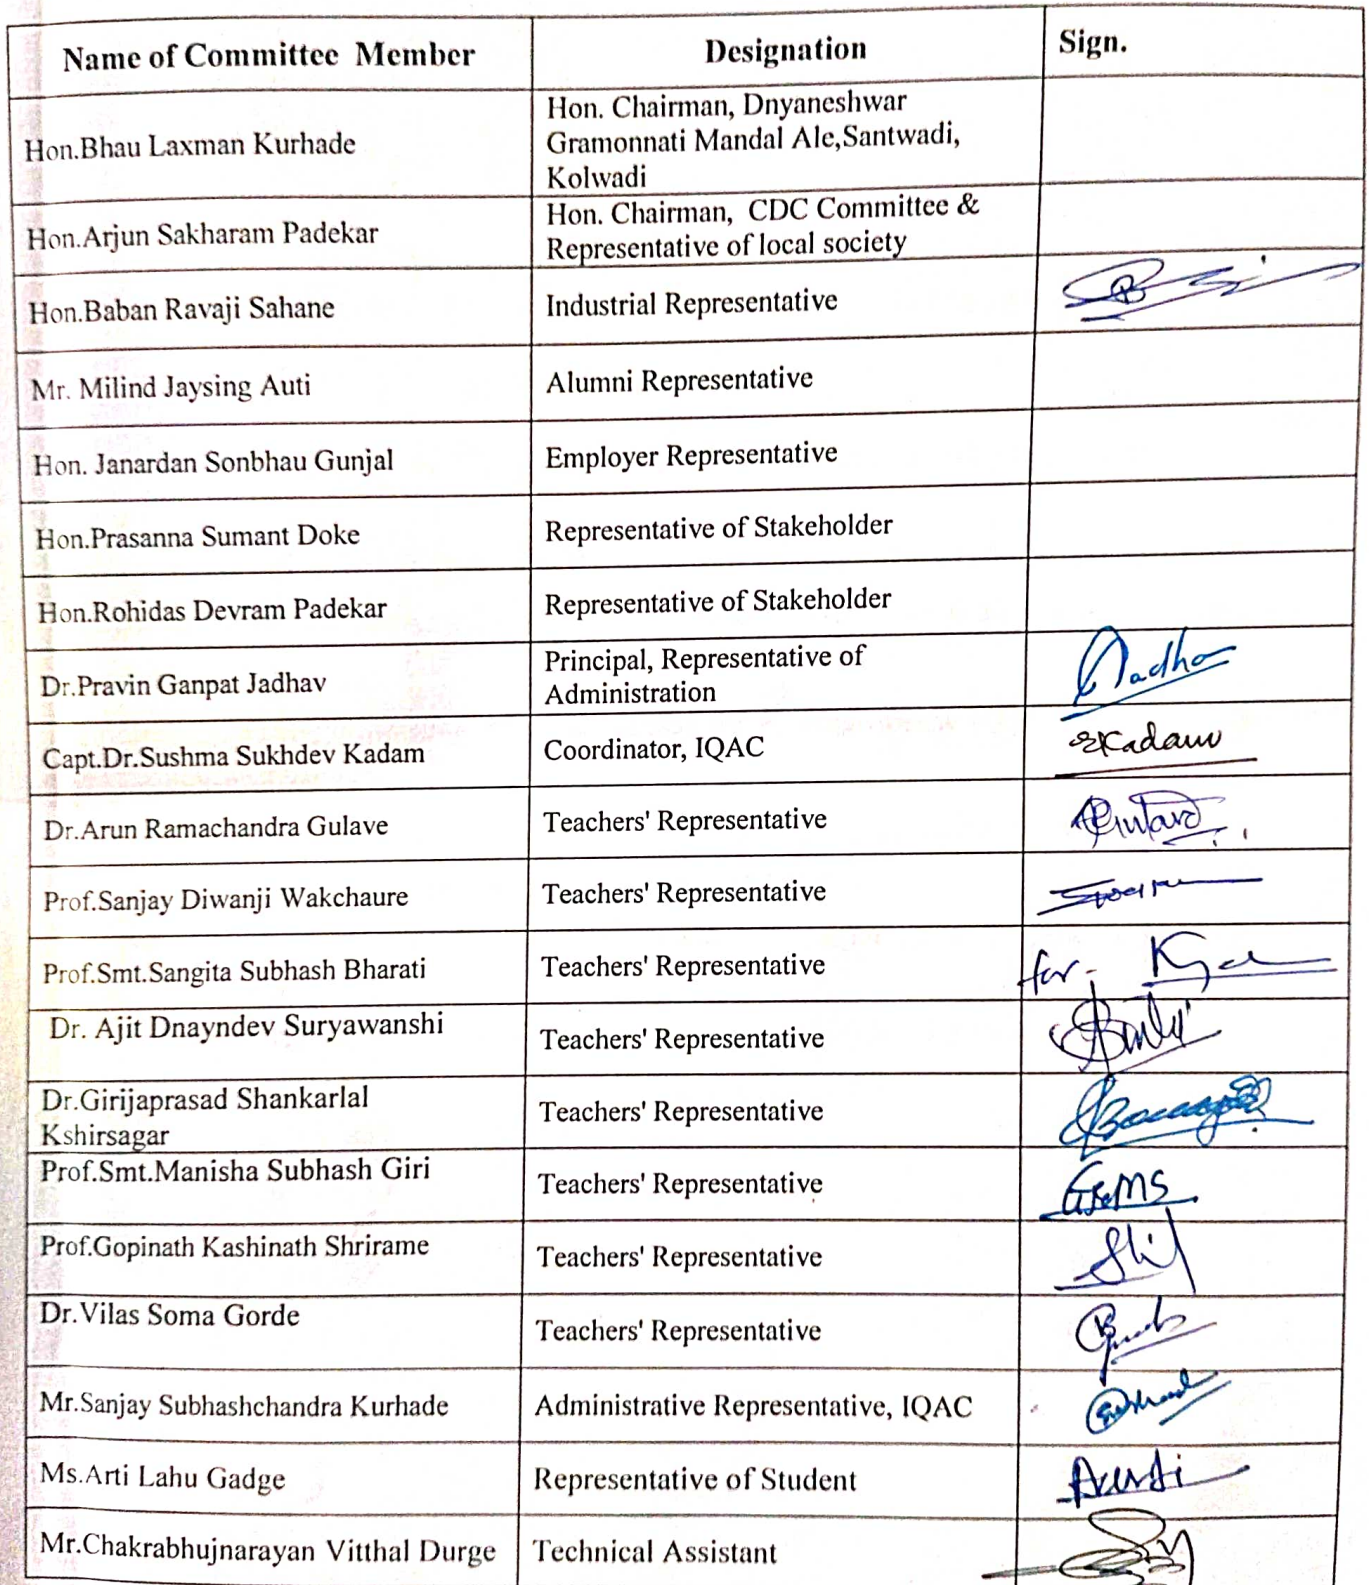 Name of Committee Member Designation Sign.
Hon.Bhau Laxman Kurhade Hon. Chairman, Dnyaneshwar
Gramonnati Mandal Ale,Santwadi,
Kolwadi
Hon.Arjun Sakharam Padekar Hon. Chairman, CDC Committee &
Representative of local society
Hon.Baban Ravaji Sahane Industrial Representative
Mr. Milind Jaysing Auti Alumni Representative
Hon. Janardan Sonbhau Gunjal Employer Representative
Hon.Prasanna Sumant Doke Representative of Stakeholder
Hon.Rohidas Devram Padekar Representative of Stakeholder
Dr.Pravin Ganpat Jadhav Principal, Representative of
Administration
Capt.Dr.Sushma Sukhdev Kadam Coordinator, IQAC SKadam
Dr.Arun Ramachandra Gulave Teachers' Representative
Prof.Sanjay Diwanji Wakchaure Teachers' Representative
Prof.Smt.Sangita Subhash Bharati Teachers' Representative for-
Dr. Ajit Dnayndev Suryawanshi Teachers' Representative
Dr.Girijaprasad Shankarlal
Kshirsagar Teachers' Representative
Prof.Smt.Manisha Subhash Giri Teachers' Representative
Prof.Gopinath Kashinath Shrirame Teachers' Representative
Dr.Vilas Soma Gorde Teachers' Representative
Mr.Sanjay Subhashchandra Kurhade Administrative Representative, IQAC
Ms.Arti Lahu Gadge Representative of Student
Mr.Chakrabhujnarayan Vitthal Durge Technical Assistant